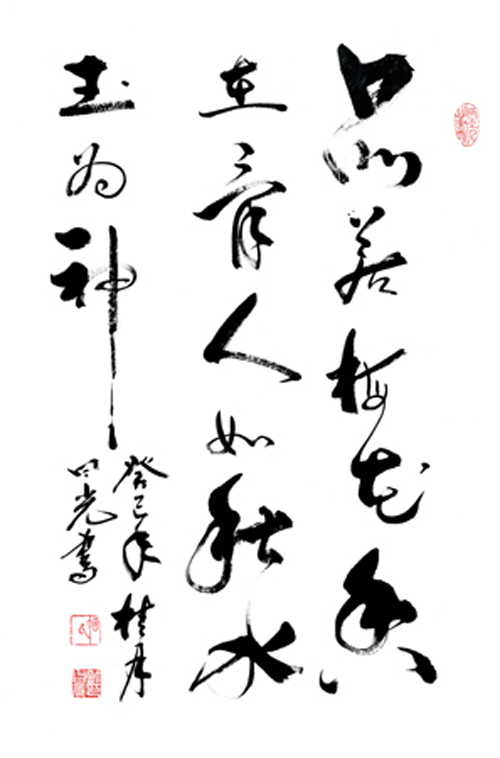 品若梅花香
在骨人如秋水
玉为神
癸巳年桂月
光書